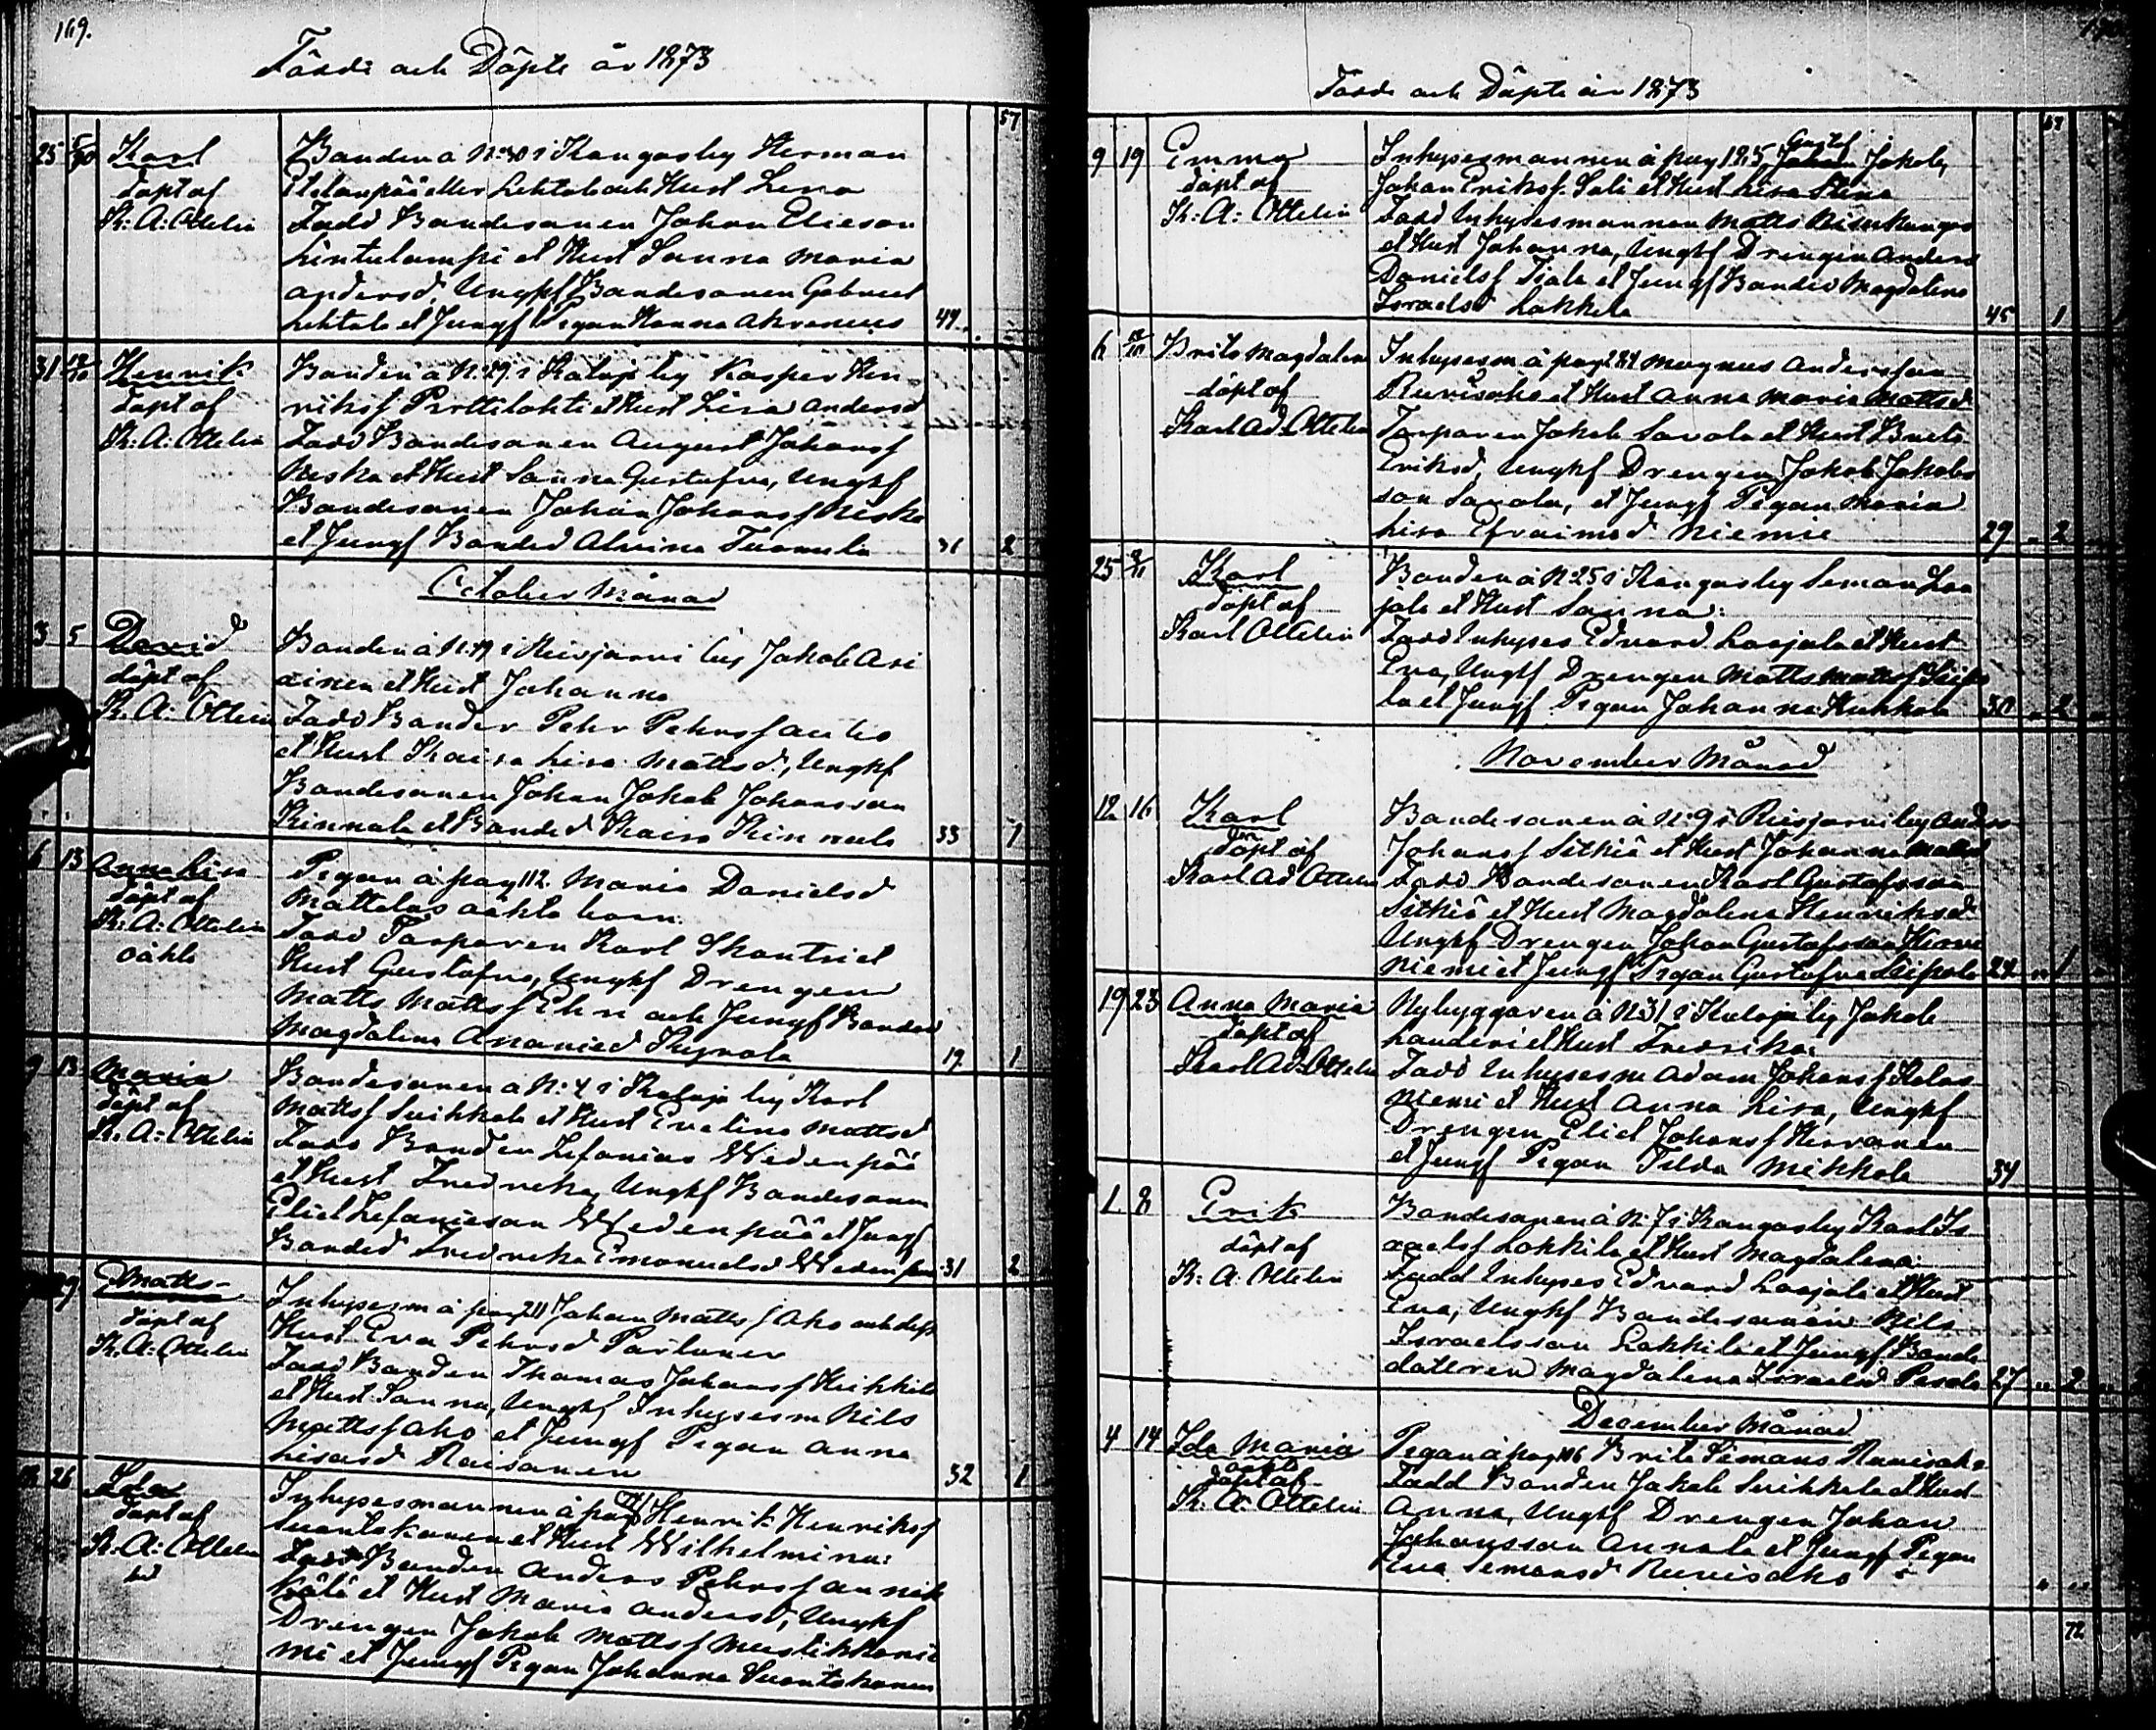 169.
Födde och Döpte år 1873
57
25 5/10 Karl
döpt af
K: A: Ottelin
Bonden å N:40 i Kangasby Herman
Etelänpää eller Lehtola och Hust Lena
Fadd Bondesonen Johan Elieson
Lintulampi et Hust Sanna Maria
Andersd, Ungkf Bondesonen Gabriel
Lehtola et Jungf Pigan Hanna Akvenius 49
31 12/10 Henrik
döpt af
K: A: Ottelin
Bonden å N:29 i Kalaja by Kasper Hen
riksf Perttilahti et Hust Lisa Andersd
Fadd Bondesonen August Johansf
Niska et Hust Sanna Gustafva, Ungkf
Bondesonen Johan Johansf Niska
et Jungf Bonded Alvina Tuomula 31 2
October Månad
3 5 David
döpt af
K. A: Ottelin
Bonden å N:19 i Reisjärvi by Jakob Asi
ainen et Hust Johanna
Fadd Bonden Pehr Pehrsf Autio
et Hust Kaisa Lisa Mattsd, Ungkf
Bondesonen Johan Jakob Johansson
Kinnula et Bonded Kaisa Kinnula 33 1
6 13 Anna Lisa
döpt af
K: A: Ottelin
oäkta
Pigan å pag 112. Maria Danielsd
Mattelas oäkta barn.
Fadd Torparen Karl Skantsi et
Hust Gustafva, Ungkf Drengen
Matts Mattsf Elin och Jungf Bonded
Magdalena Ananied Kyrola 19 1
9 13 Maria
döpt af
K. A: Ottelin
Bondesonen å N:4 i Kalaja by Karl
Mattsf Suikkola et Hust Evelina Mattsd
Fadd Bonden Zefanias Wedenpää
et Hust Fredrika, Ungkf Bondesonen
Eliel Zefaniesson Wedenpää et Jungf
Bonded Fredrika Emanuelsd Wedenpää 31 2
19 Matts
döpt af
K. A: Ottelin
Inhysesm å pag 211 Johan Mattsf Aho och dess
Hust Eva Pehrsd Parlaner
Fadd Bonden Thomas Johansf Heikkila
et Hust Sanna, Ungkf Inhysesm Nils
Mattsf Aho et Jungf Pigan Anna
Lisasd Raisanen 32 1
26 Ida
döpt af
K. A: Ottelin
Inhysesmannen å pag Henrik Henriksf
Suontakanen et Hust Wilhelmina:
Fadd Bonden Anders Pehrsf Annik
kälä et Hust Maria Andersd, Ungkf
Drengen Jakob Mattsf Mustikkanie
mi et Jungf Pigan Johanna Suontakanen
Födde och Döpte år 1873
9 19 Emma
döpt af
K: A: Ottelin
Inhysesmannen å pag 125, Gustaf Johan Jakob,
Johan Eriksf. Sali et Hust Lisa Stina
Fadd Inhysesmannen Matts Niskakangas
et Hust Johanna, Ungkf Drengen Anders
Danielsf Tiala et Jungf Bonded Magdalena
Israelsd Lokkila 45 1
6 Brita Magdalena
döpt af
Karl Ad. Ottelin
Inhysesm å pag 234 Magnus Andersson
Ruuisaho et Hust Anna Maria Mattsd
Torparen Jakob Savola et Hust Brita
Eriksd, Ungkf Drengen Jakob Jakobs
son Savola, et Jungf Pigan Maria
Lisa Efraimsd Niemie 29 2
25 2/11 Karl
döpt af
Karl Ottelin
Bonden å N:25 i Kangasby Seman Laa
jala et Hust Sanna:
Fadd Inhyses Edvard Laajala et Hust
Eva, Ungkf Drengen Matts Mattsf Leipa
la et Jungf Pigan Johanna Kukkola 30 2
November Månad
12 16 Karl
döpt af
Karl Ad Ottelin
Bondesonen å N:9 i Reisjärvi by Anders
Johansf Sitkiä et Hust Johanna Mattsd
Fadd Bondesonen Karl Gustafsson
Sitkiä et Hust Magdalena Henriksd
Ungkf Drengen Johan Gustafsson Hirvi
niemi et Jungf Pigan Gustafva Leipala 24 1
19 23 Anna Maria
döpt af
Karl Ad. Ottelin
Nybyggaren å N:31 i Kalaja by Jakob
Landeri et Hust Fredrika:
Fadd Inhysesm Adam Johansf Kolas
niemi et Hust Anna Lisa, Ungkf
Drengen Eliel Johansf Hirvonen
et Jungf Pigan Tilda Mikkola 34
1 8 Erik
döpt af
K. A: Ottelin
Bondesonen å N:7 i Kangasby Karl Is
raelsf Lokkila et Hust Magdalena:
Fadd Inhyses Edvard Laajala et Hust
Eva, Ungkf Bondesonen Nils
Israelsson Lokkila et Jungf Bonde
dotteren Magdalena Israelsd Pesola 27 2
December Månad
4 14 Ida Maria
oäkta
döpt af
K. A: Ottelin
Pigan å pag 116 Brita Semans Ruuisaho
Fadd Bonden Jakob Suikkola et Hust
Anna, Ungkf Drengen Johan
Johansson Annala et Jungf Pigan
Eva Semansd Ruuisaho
72